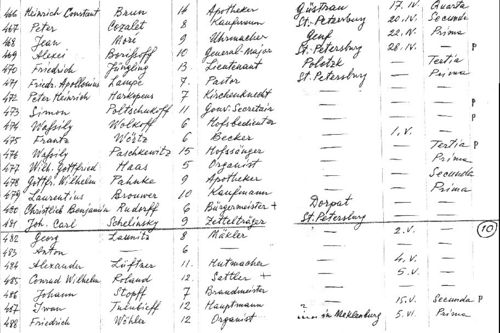 466 Heinrich Constant Brun 14 Apotheker Güstrau 17. IV. Quarta
467 Peter Cozalet 8 Kaufmann St.-Petersburg 20. IV. Secunda
468 Jean Mori 9 Uhrmacher Genf 22. IV. Prima
469 Alexei Borißoff 10 General-Major St.-Petersburg 28. IV. — P
470 Friedrich 13 Lieutenant Polotzk — Tertia
471 Friedr. Apollonius Lampe 7 Pastor St. Petersburg — Prima
472 Peter Heinrich 7 Kirchenknecht — — —
473 Simon Poltschukoff 11 Gouv. Secretair — — — P
474 Waßily Wolkoff 6 Hofsbedienter — — — P
475 Frantz Wörtz 6 Becker — 1. V. —
476 Waßily Paschkewitz 15 Hofssänger — — Tertia P
477 Wilh. Gottfried Haas 5 Organist — — Prima
478 Gottfr. Wilhelm Pahnke 9 Apotheker — — Secunda
479 Laurentius Brouwer 10 Kaufmann — — Prima
480 Christlich Benjamin Rudorff 6 Bürgermeister + Dorpat — —
481 Joh. Carl Schelinsky 9 Zettelträger St. Petersburg — —
482 Georg Launitz 8 Mäkler — 2. V. — 10
483 Anton — 6 — — — —
484 Alexander Lüftner 11 Hutmacher — 4. V. —
485 Conrad Wilhelm Roland 12 Sattler + — 5. V. —
486 Johann Stopff 7 Brandmeister — — —
487 Iwan Tulubieff 12 Hauptmann — 15. V. Secunda P
488 Friedrich Wöhler 12 Organist in Mecklenburg 5. V. Prima